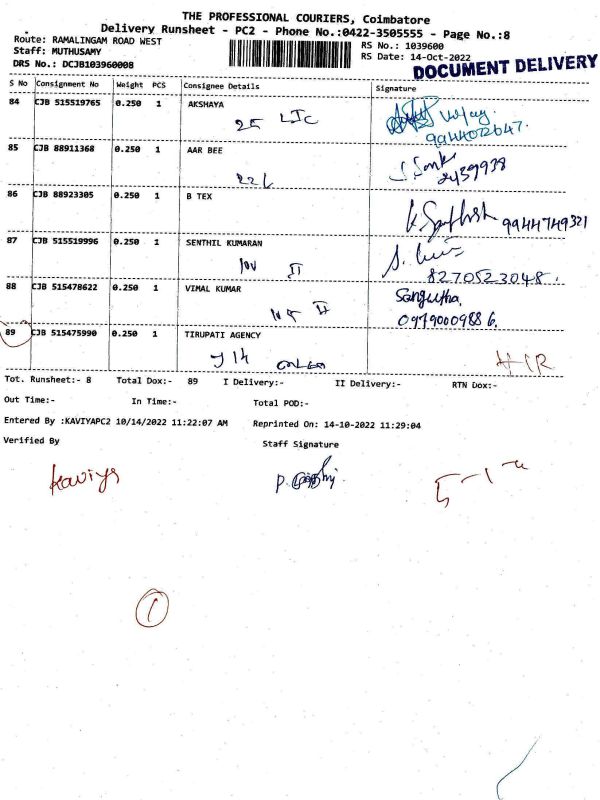 THE PROFESSIONAL COURIERS, Coimbatore
Delivery Runsheet - PC2 - Phone No.:0422-3505555 - Page No.:8
Route: RAMALINGAM ROAD WEST
RS No.: 1039600
Staff: MUTHUSAMY
RS Date: 14-Oct-2022
DRS No.: DCJB103960008
DOCUMENT DELIVERY
S No Consignment No Weight PCS Consignee Details Signature
84 CJB 515519765 0.250 1 AKSHAYA
25 LIC
9944022647.
85 CJB 88911368 0.250 1 AAR BEE
221
2439938
86 CJB 88923305 0.250 1 B TEX
9944749321
87 CJB 515519996 0.250 1 SENTHIL KUMARAN
8270523048.
88 CJB 515478622 0.250 1 VIMAL KUMAR
Sangutha.
09790009886.
89 CJB 515475990 0.250 1 TIRUPATI AGENCY
Tot. Runsheet:- 8 Total Dox:- 89 I Delivery:- II Delivery:- RTN Dox:-
Out Time:- In Time:- Total POD:-
Entered By :KAVIYAPC2 10/14/2022 11:22:07 AM Reprinted On: 14-10-2022 11:29:04
Verified By Staff Signature
Kaviya
1